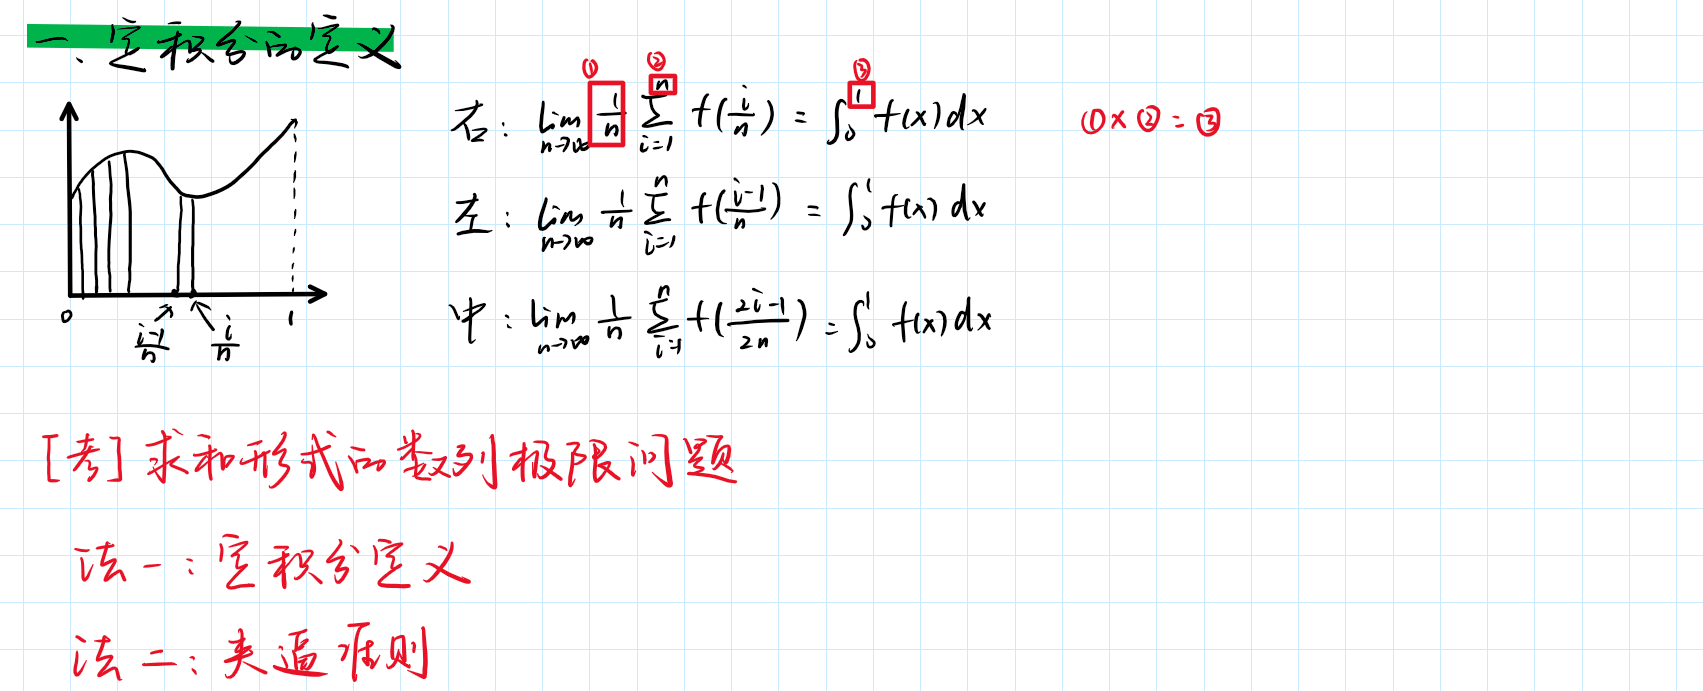 一、定积分的定义
① ② ③
右: lim n→∞ 1/n ∑ i=1 n f(i/n) = ∫₀¹ f(x)dx ①×②=③
左: lim n→∞ 1/n ∑ i=1 n f((i-1)/n) = ∫₀¹ f(x)dx
中: lim n→∞ 1/n ∑ i=1 n f((2i-1)/2n) = ∫₀¹ f(x)dx
0 (i-1)/n i/n 1
[考] 求和形式的数列极限问题
法一: 定积分定义
法二: 夹逼准则